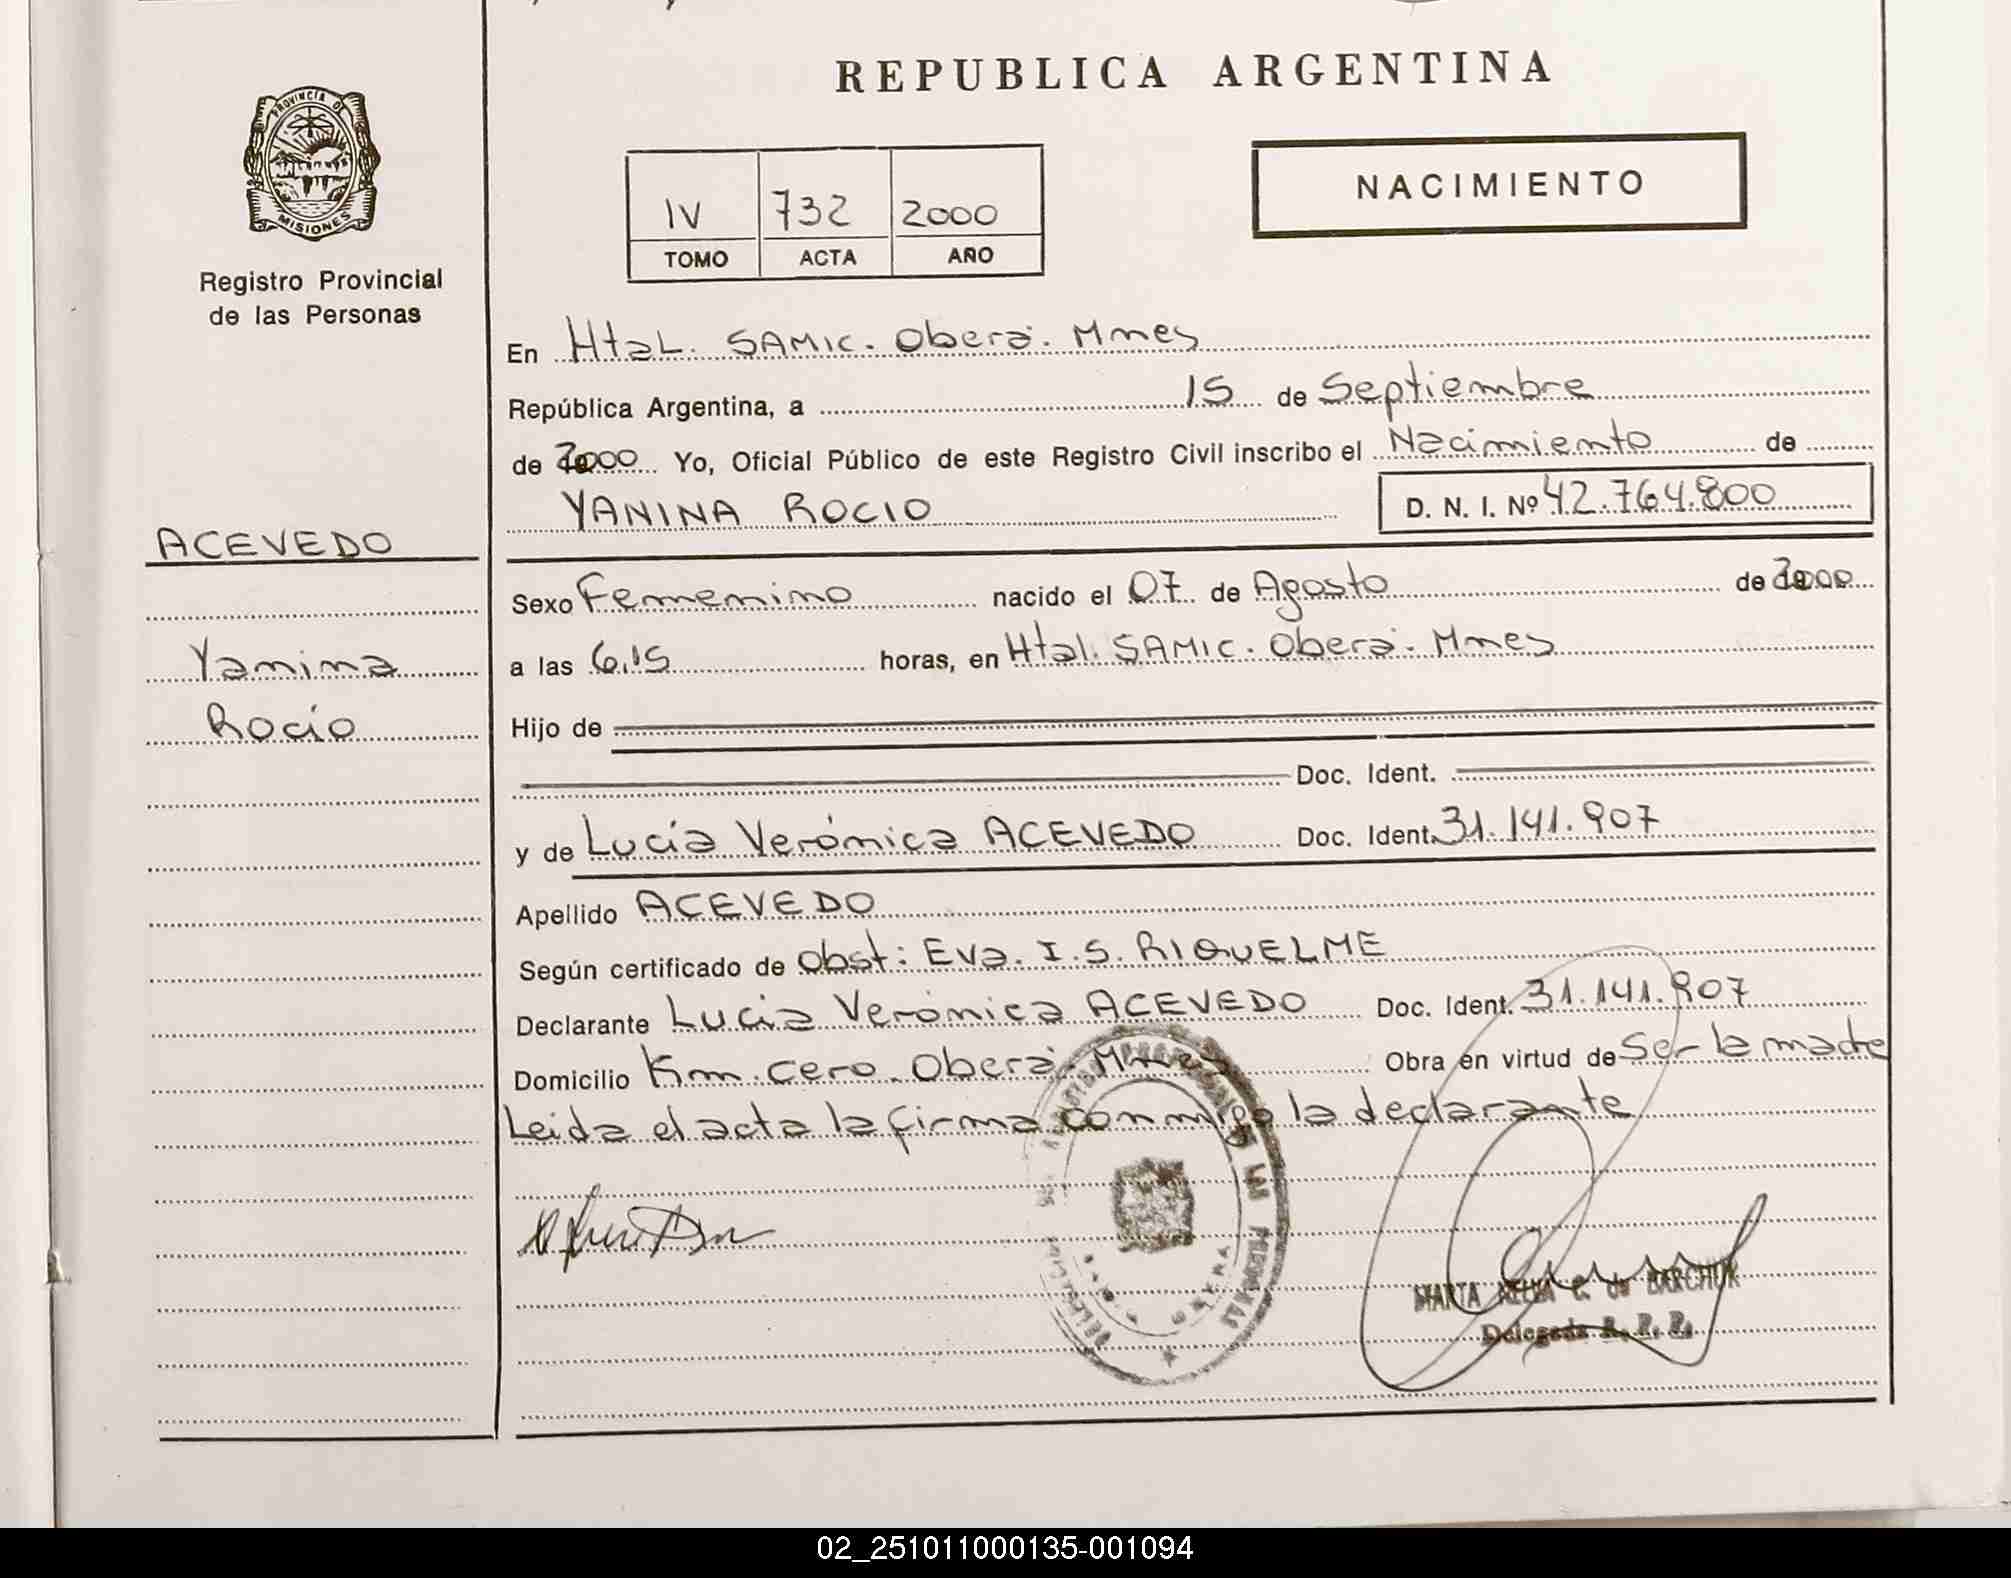 REPUBLICA ARGENTINA
PROVINCIA DE
MISIONES
Registro Provincial
de las Personas
IV 732 2000
TOMO ACTA AÑO
NACIMIENTO
En Htal. SAMIC. Oberá. Mnes
República Argentina, a 15 de Septiembre
de 2000 Yo, Oficial Público de este Registro Civil inscribo el Nacimiento de
YANINA ROCIO D. N. I. Nº 42.764.800
ACEVEDO
Yanina
Rocío
Sexo Femenino nacido el 07 de Agosto de 2000
a las 6.15 horas, en Htal. SAMIC. Oberá. Mnes
Hijo de
Doc. Ident.
y de Lucía Verónica ACEVEDO Doc. Ident. 31.141.907
Apellido ACEVEDO
Según certificado de Obst: Eva. I. S. RIQUELME
Declarante Lucía Verónica ACEVEDO Doc. Ident. 31.141.907
Domicilio Km. cero. Oberá. Mnes Obra en virtud de Ser la madre
Leida el acta la firma conmigo la declarante
MARTA C. de BARCHUK
Delegada R. P. P.
02_251011000135-001094